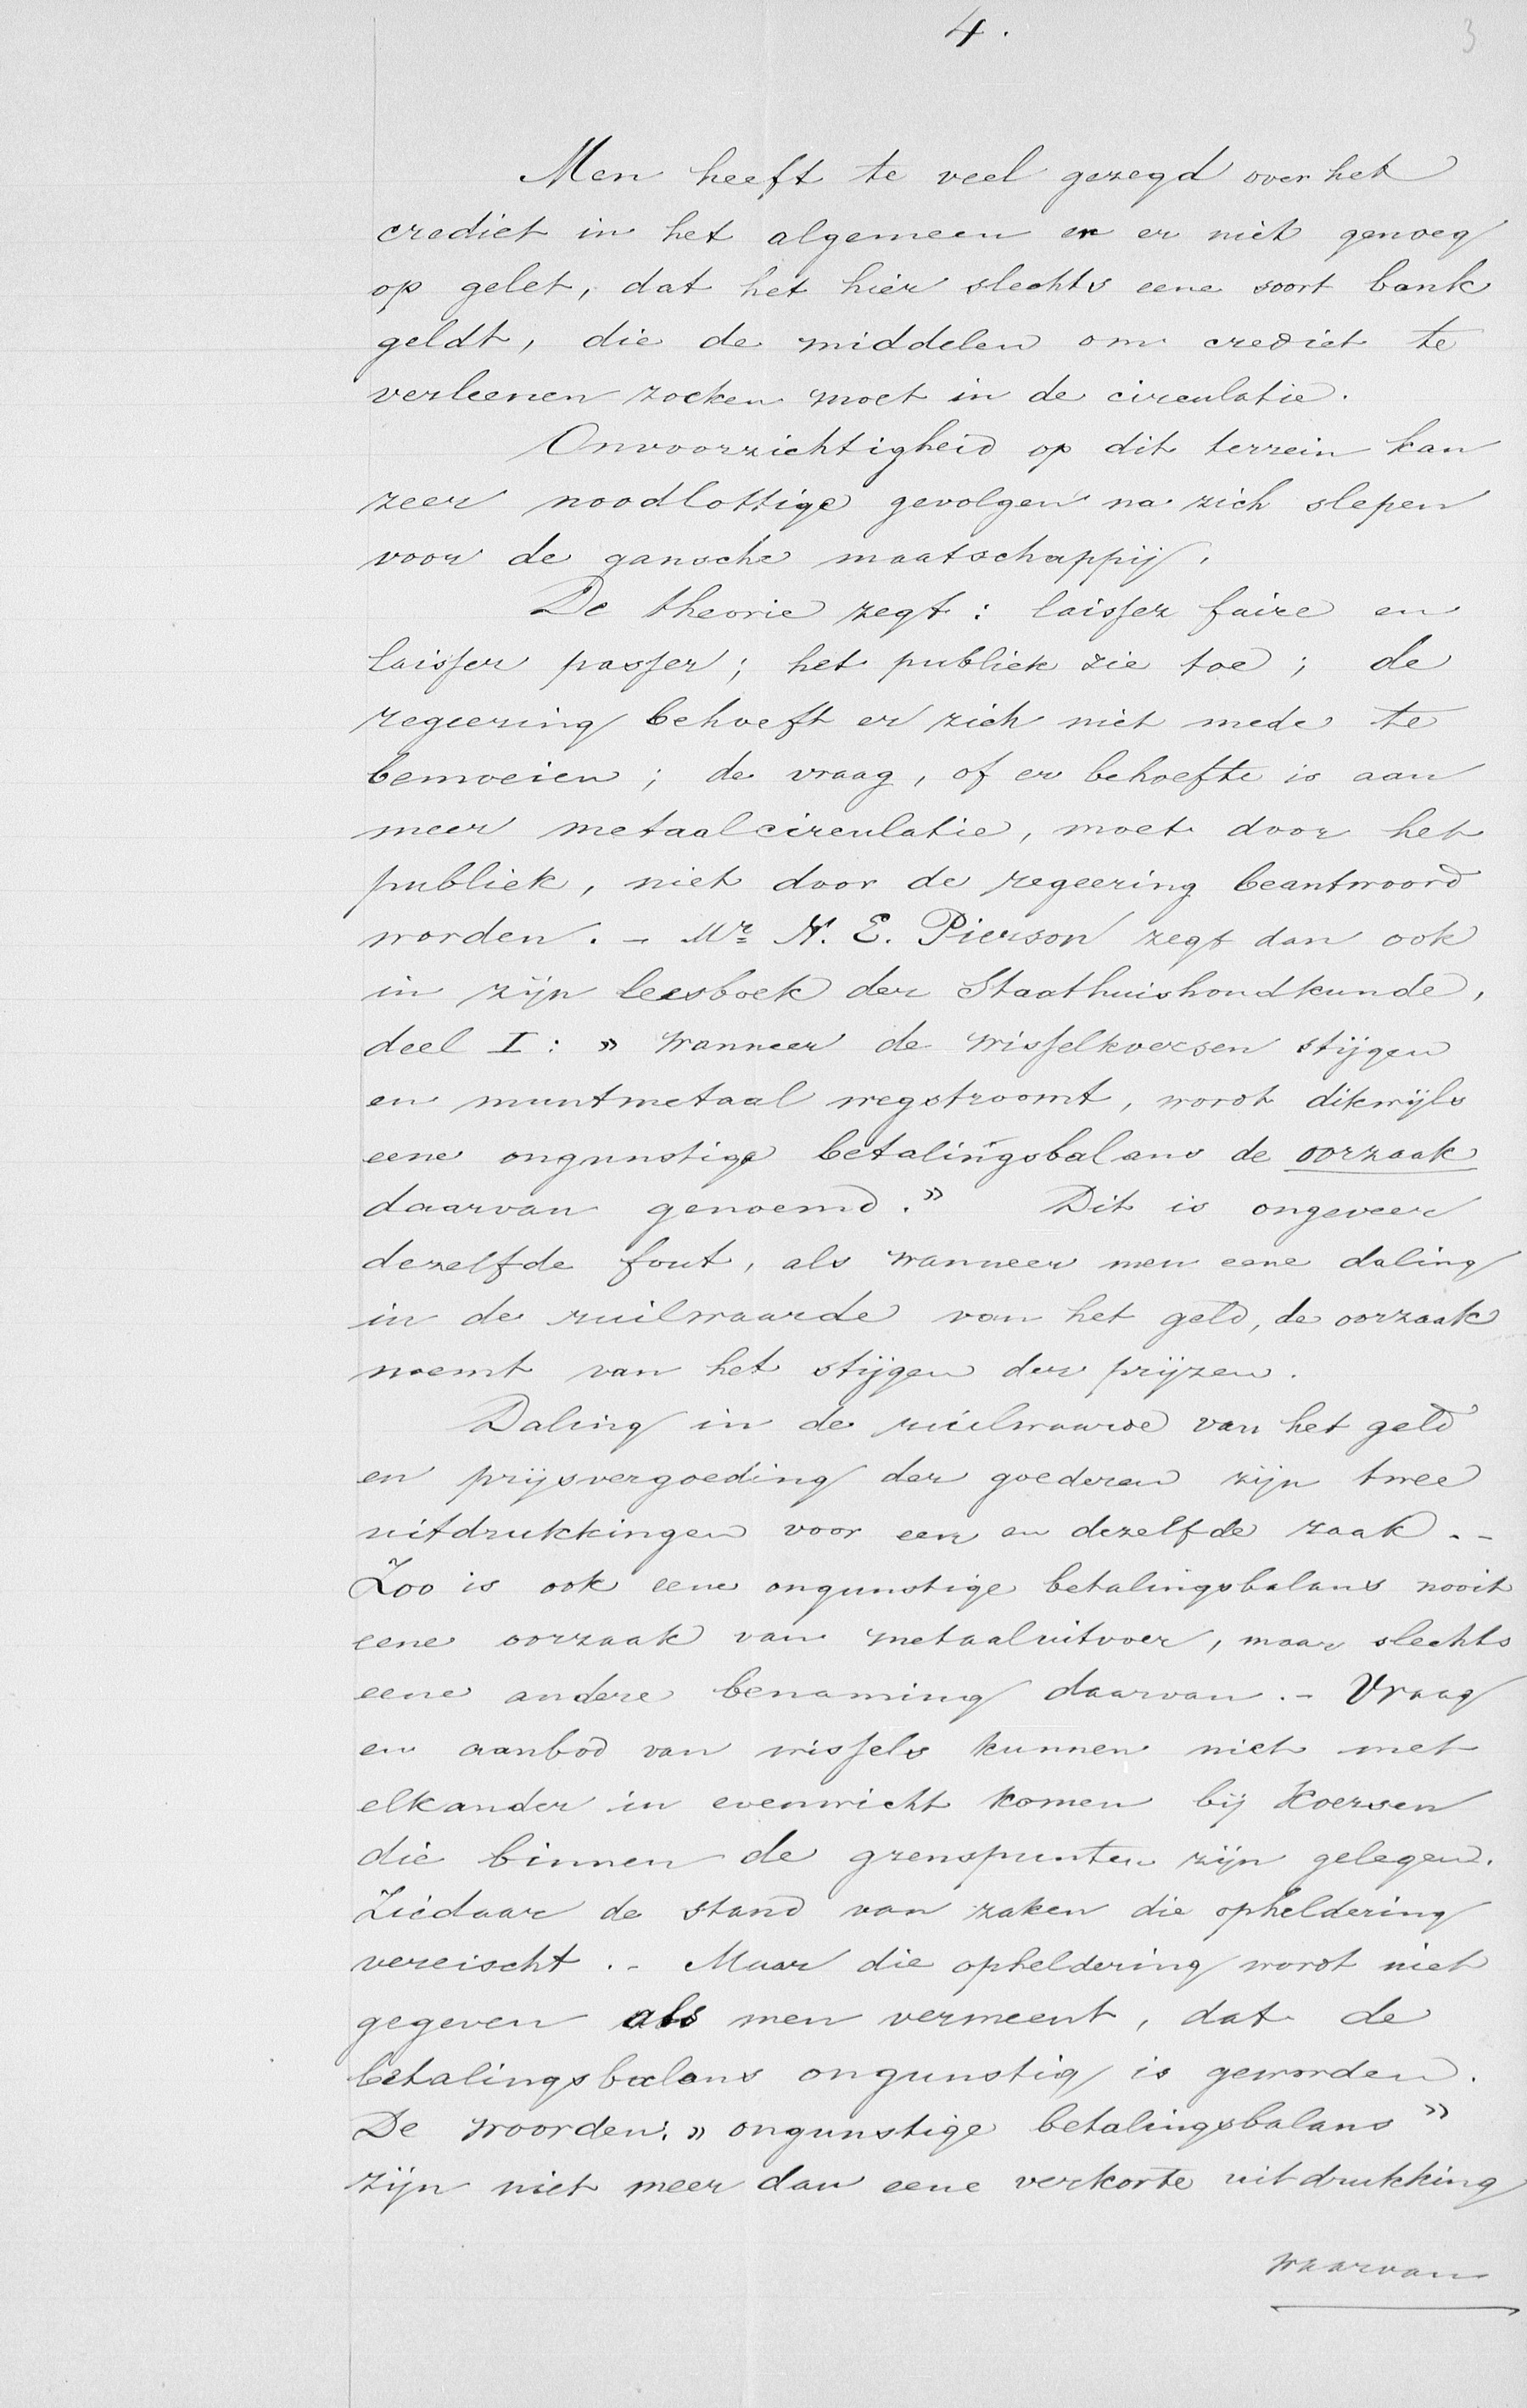 4.
3
Men heeft te veel gezegd over het
crediet in het algemeen en er niet genoeg
op gelet, dat het hier slechts eene soort bank
geldt, die de middelen om crediet te
verleenen zoeken moet in de circulatie.
Onvoorzichtigheid op dit terrein kan
zeer noodlottige gevolgen na zich slepen
voor de gansche maatschappij.
De theorie zegt: laissez faire en
laisser passer; het publiek zie toe; de
regeering behoeft er zich niet mede te
bemoeien; de vraag, of er behoefte is aan
meer metaalcirculatie, moet door het
publiek, niet door de regeering beantwoord
worden. – Mr N. E. Pierson zegt dan ook
in zijn leesboek der Staathuishoudkunde,
deel I: » Wanneer de Wisselkoersen stijgen
en muntmetaal wegstroomt, wordt dikwijls
eene ongunstige betalingsbalans de oorzaak
daarvan genoemd.» Dit is ongeveer
dezelfde fout, als wanneer men eene daling
in de ruilwaarde van het geld, de oorzaak
noemt van het stijgen der prijzen.
Daling in de ruilwaarde van het geld
en prijsvergoeding der goederen zijn twee
uitdrukkingen voor een en dezelfde zaak. –
Zoo is ook eene ongunstige betalingsbalans nooit
eene oorzaak van metaaluitvoer, maar slechts
eene andere benaming daarvan. – Vraag
en aanbod van wissels kunnen niet met
elkander in evenwicht komen bij Koersen
die binnen de grenspunten zijn gelegen.
Ziedaar de stand van zaken die opheldering
vereischt. – Maar die opheldering wordt niet
gegeven als men vermeent, dat de
betalingsbalans ongunstig is geworden.
De woorden: » ongunstige betalingsbalans »
zijn niet meer dan eene verkorte uitdrukking
waarvan